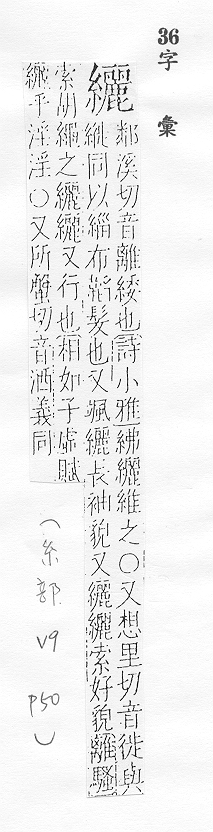 36
字彙
纚
鄰溪切音離緌也詩小雅紼纚維之○又想里切音徙與
縰同以緇布韜髮也又颯纚長袖貌又纚纚索好貌離騷
索胡繩之纚纚又行也相如子虛賦
纚乎淫淫○又所蟹切音洒義同
(糸部 V9 P50)